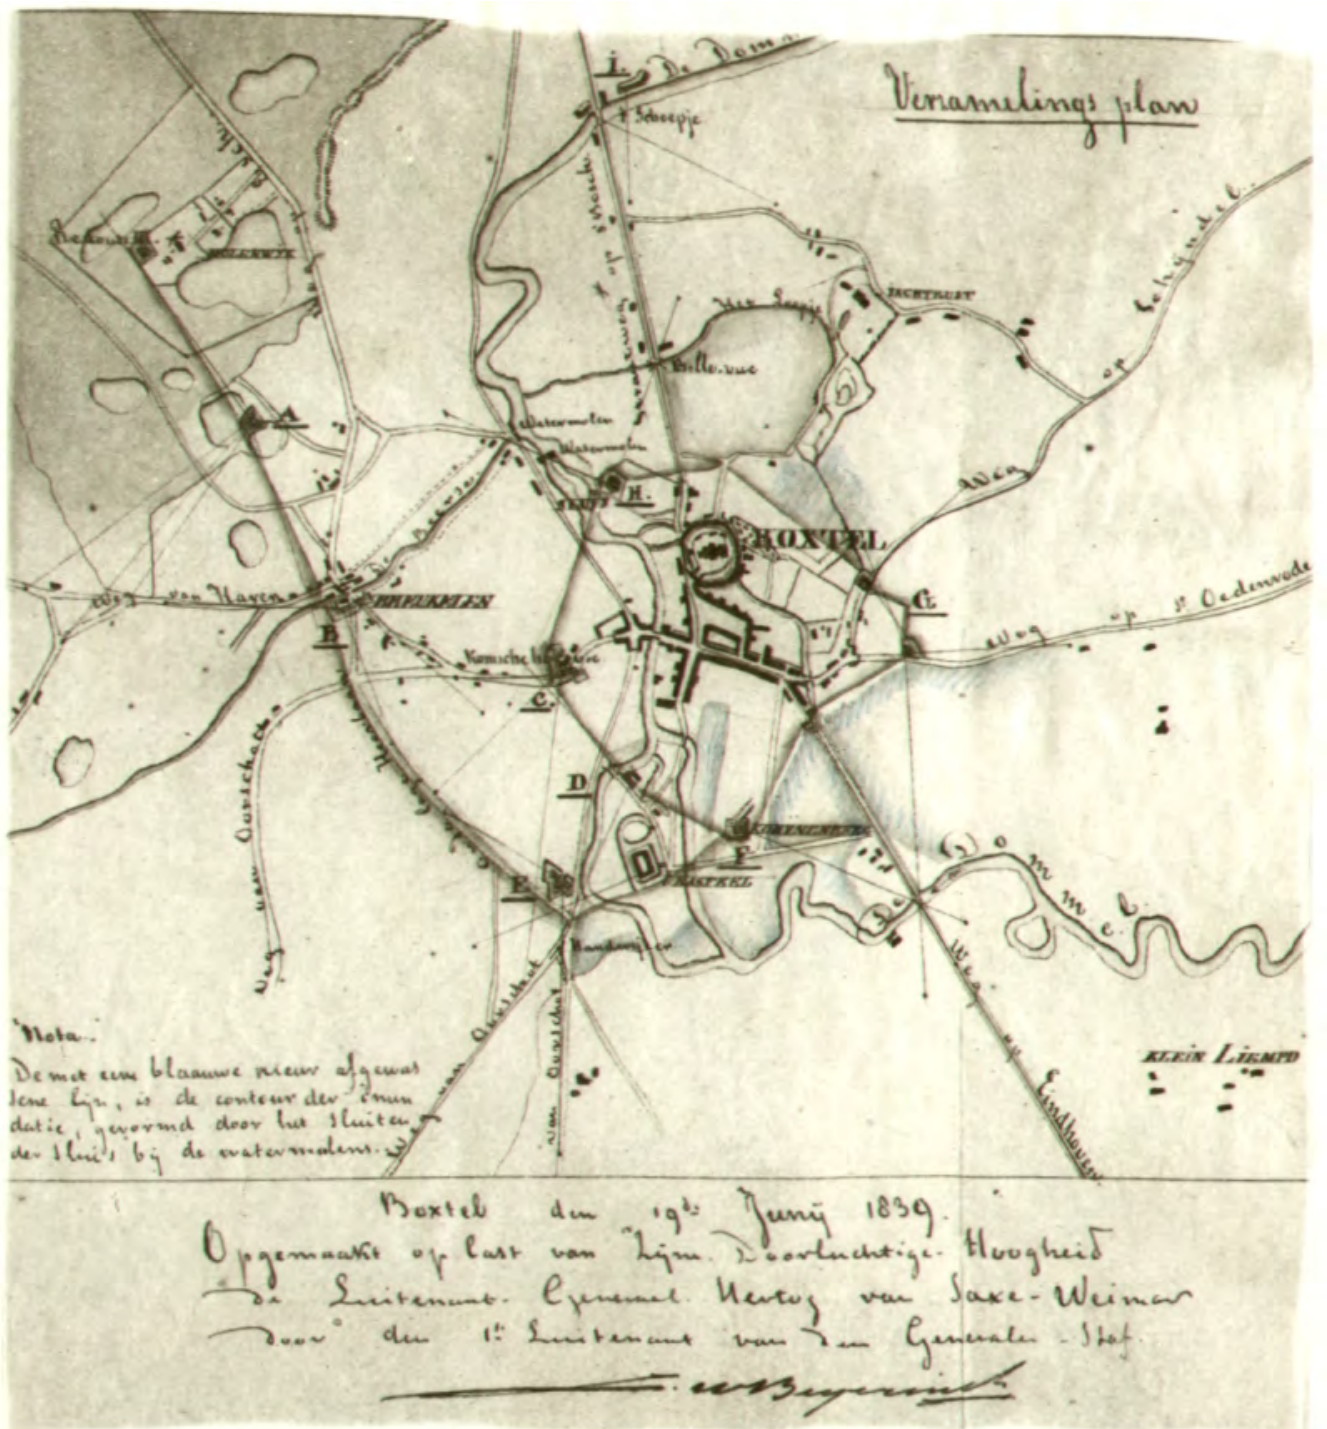 Verzamelings plan
I.
De Dom
't Scheepje
op
Schijndel
op
Weg
JACHTRUST
Het Loopje
Belle-vue
Watermolen
Watermolen
A
H.
BOXTEL
G.
Weg op St Oedenrode
Weg van Haren
BREUKELEN
B
C.
D
E
F
De Dommel
Weg van Oorschot
Weg van Oorschot
van Oorschot
Weg op Eindhoven
KLEIN LIEMPD
Nota.
De met eene blaauwe nieuw afgewas
sene lijn, is de contour der inun
datie, gevormd door het sluiten
der sluis bij de watermolens.
Boxtel den 19de Junij 1839.
Opgemaakt op last van Zijne Doorluchtige Hoogheid
de Luitenant-Generaal Hertog van Saxe-Weimar
door den 1ste Luitenant van den Generalen-Staf.